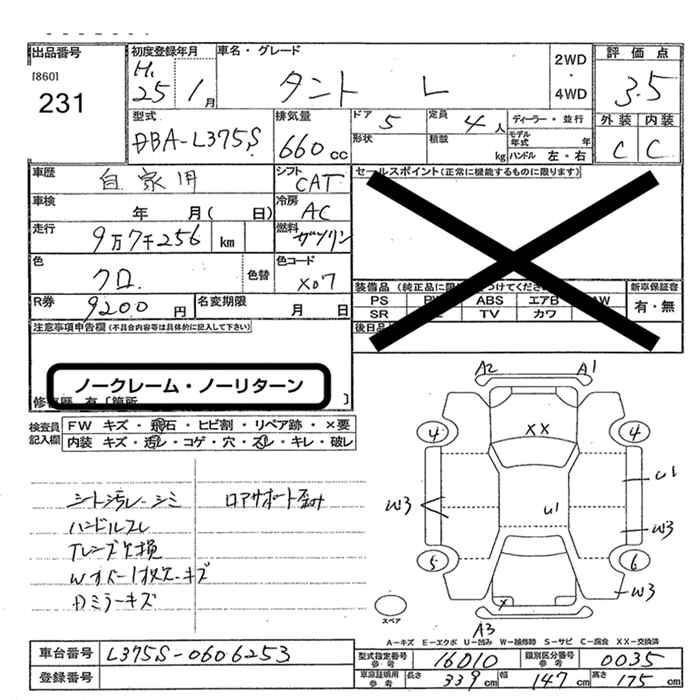 出品番号
[860]
231
初度登録年月
H.
25 1月
車名・グレード
タント L
2WD
・
4WD
評価点
3.5
外装 内装
C C
型式
DBA-L375S
排気量
660cc
ドア 5
形状
定員 4人
積載 kg
ディーラー・並行
モデル年式 年
ハンドル 左・右
車歴
自家用
シフト
CAT
車検
年 月( 日)
冷房
AC
走行
9万7千256 km
燃料
ガソリン
色
クロ.
色替
色コード
X07
R券
9200円
名変期限
月 日
セールスポイント(正常に機能するものに限ります)
装備品
PS ABS エアB AW
SR TV カワ
後日品
新車保証書
有・無
注意事項申告欄(不具合内容等は具体的に記入して下さい)
ノークレーム・ノーリターン
検査員記入欄
FW キズ・飛石・ヒビ割・リペア跡・×要
内装 キズ・汚レ・コゲ・穴・スレ・キレ・破レ
シート汚レ・シミ ロアサポート歪み
ハンドルスレ
Tレンズ欠損
Dミラーキズ
A2 A1
4 XX 4
U1
W3 U1
W3
5 6
W3
X
スペア
A3
A−キズ E−エクボ U−凹み W−補修跡 S−サビ C−腐食 XX−交換済
車台番号
L375S-0606253
登録番号
型式指定番号
参考
16010
類別区分番号
参考
0035
車庫証明用
参考
長さ 339cm 幅 147cm 高さ 175cm